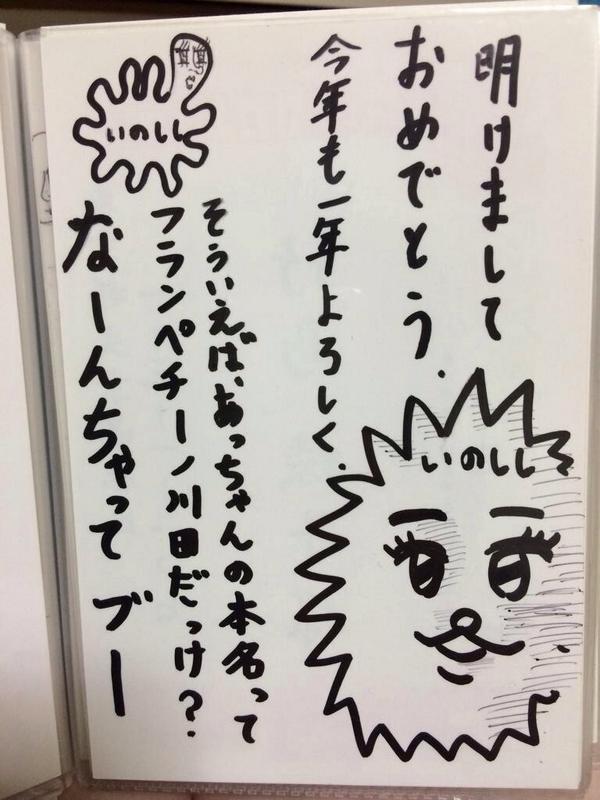 明けまして
おめでとう.
今年も一年よろしく.
いのしし
そういえば、あっちゃんの本名って
フランペチーノ川田だっけ?
なーんちゃって ブー
いのしし